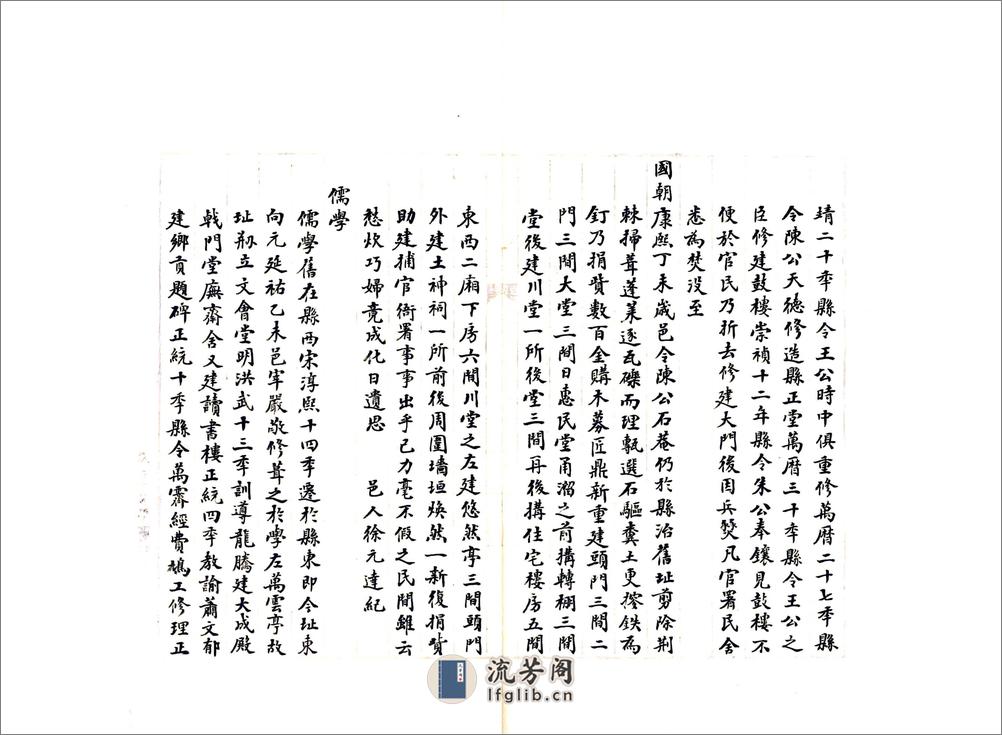 靖二十年縣令王公時中俱重修萬曆二十七年縣
令陳公天德修造縣正堂萬曆三十年縣令王公之
臣修建鼓樓崇禎十二年縣令朱公奉鑲見鼓樓不
便於官民乃折去修建大門後因兵燹凡官署民舍
悉為焚沒至
國朝康熙丁未歲邑令陳公石菴仍於縣治舊址剪除荆
棘掃葺蓬萊逐瓦礫而理甎選石驅糞土更搾鉄為
釘乃捐貲數百金購木募匠鼎新重建頭門三間二
門三間大堂三間曰惠民堂甬溜之前搆轉棚三間
堂後建川堂一所後堂三間再後搆住宅樓房五間
東西二廂下房六間川堂之左建悠然亭三間頭門
外建土神祠一所前後周圍墻垣煥然一新復捐貲
助建捕官衙署事事出乎己力毫不假之民間雖云
愁炊巧婦竟成化日遺思 邑人徐元達紀
儒學
儒學舊在縣西宋淳熙十四年遷於縣東即今址東
向元延祐乙未邑宰嚴敬修葺之於學左萬雲亭故
址刱立文會堂明洪武十三年訓導龍騰建大成殿
戟門堂廡齋舍又建讀書樓正統四年教諭蕭文郁
建鄉貢題碑正統十年縣令萬霽經費鳩工修理正
流芳阁
lfglib.cn